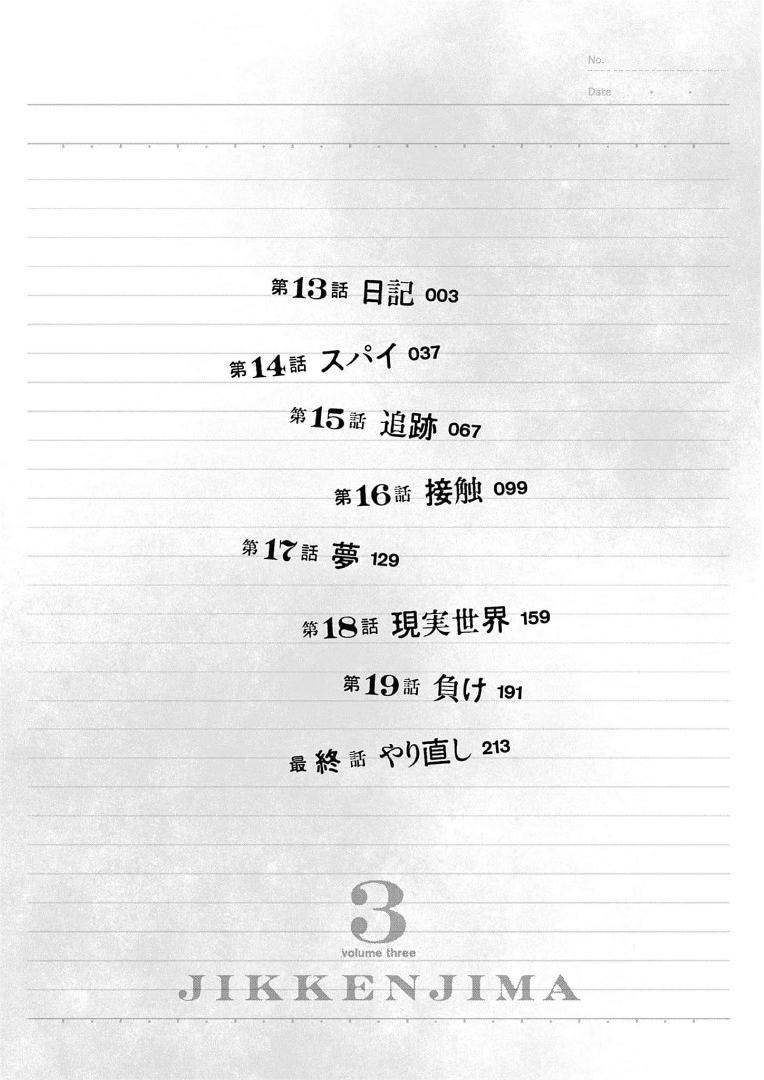 No.
Date
第13話 日記 003
第14話 スパイ 037
第15話 追跡 067
第16話 接触 099
第17話 夢 129
第18話 現実世界 159
第19話 負け 191
最終話 やり直し 213
3
volume three
JIKKENJIMA